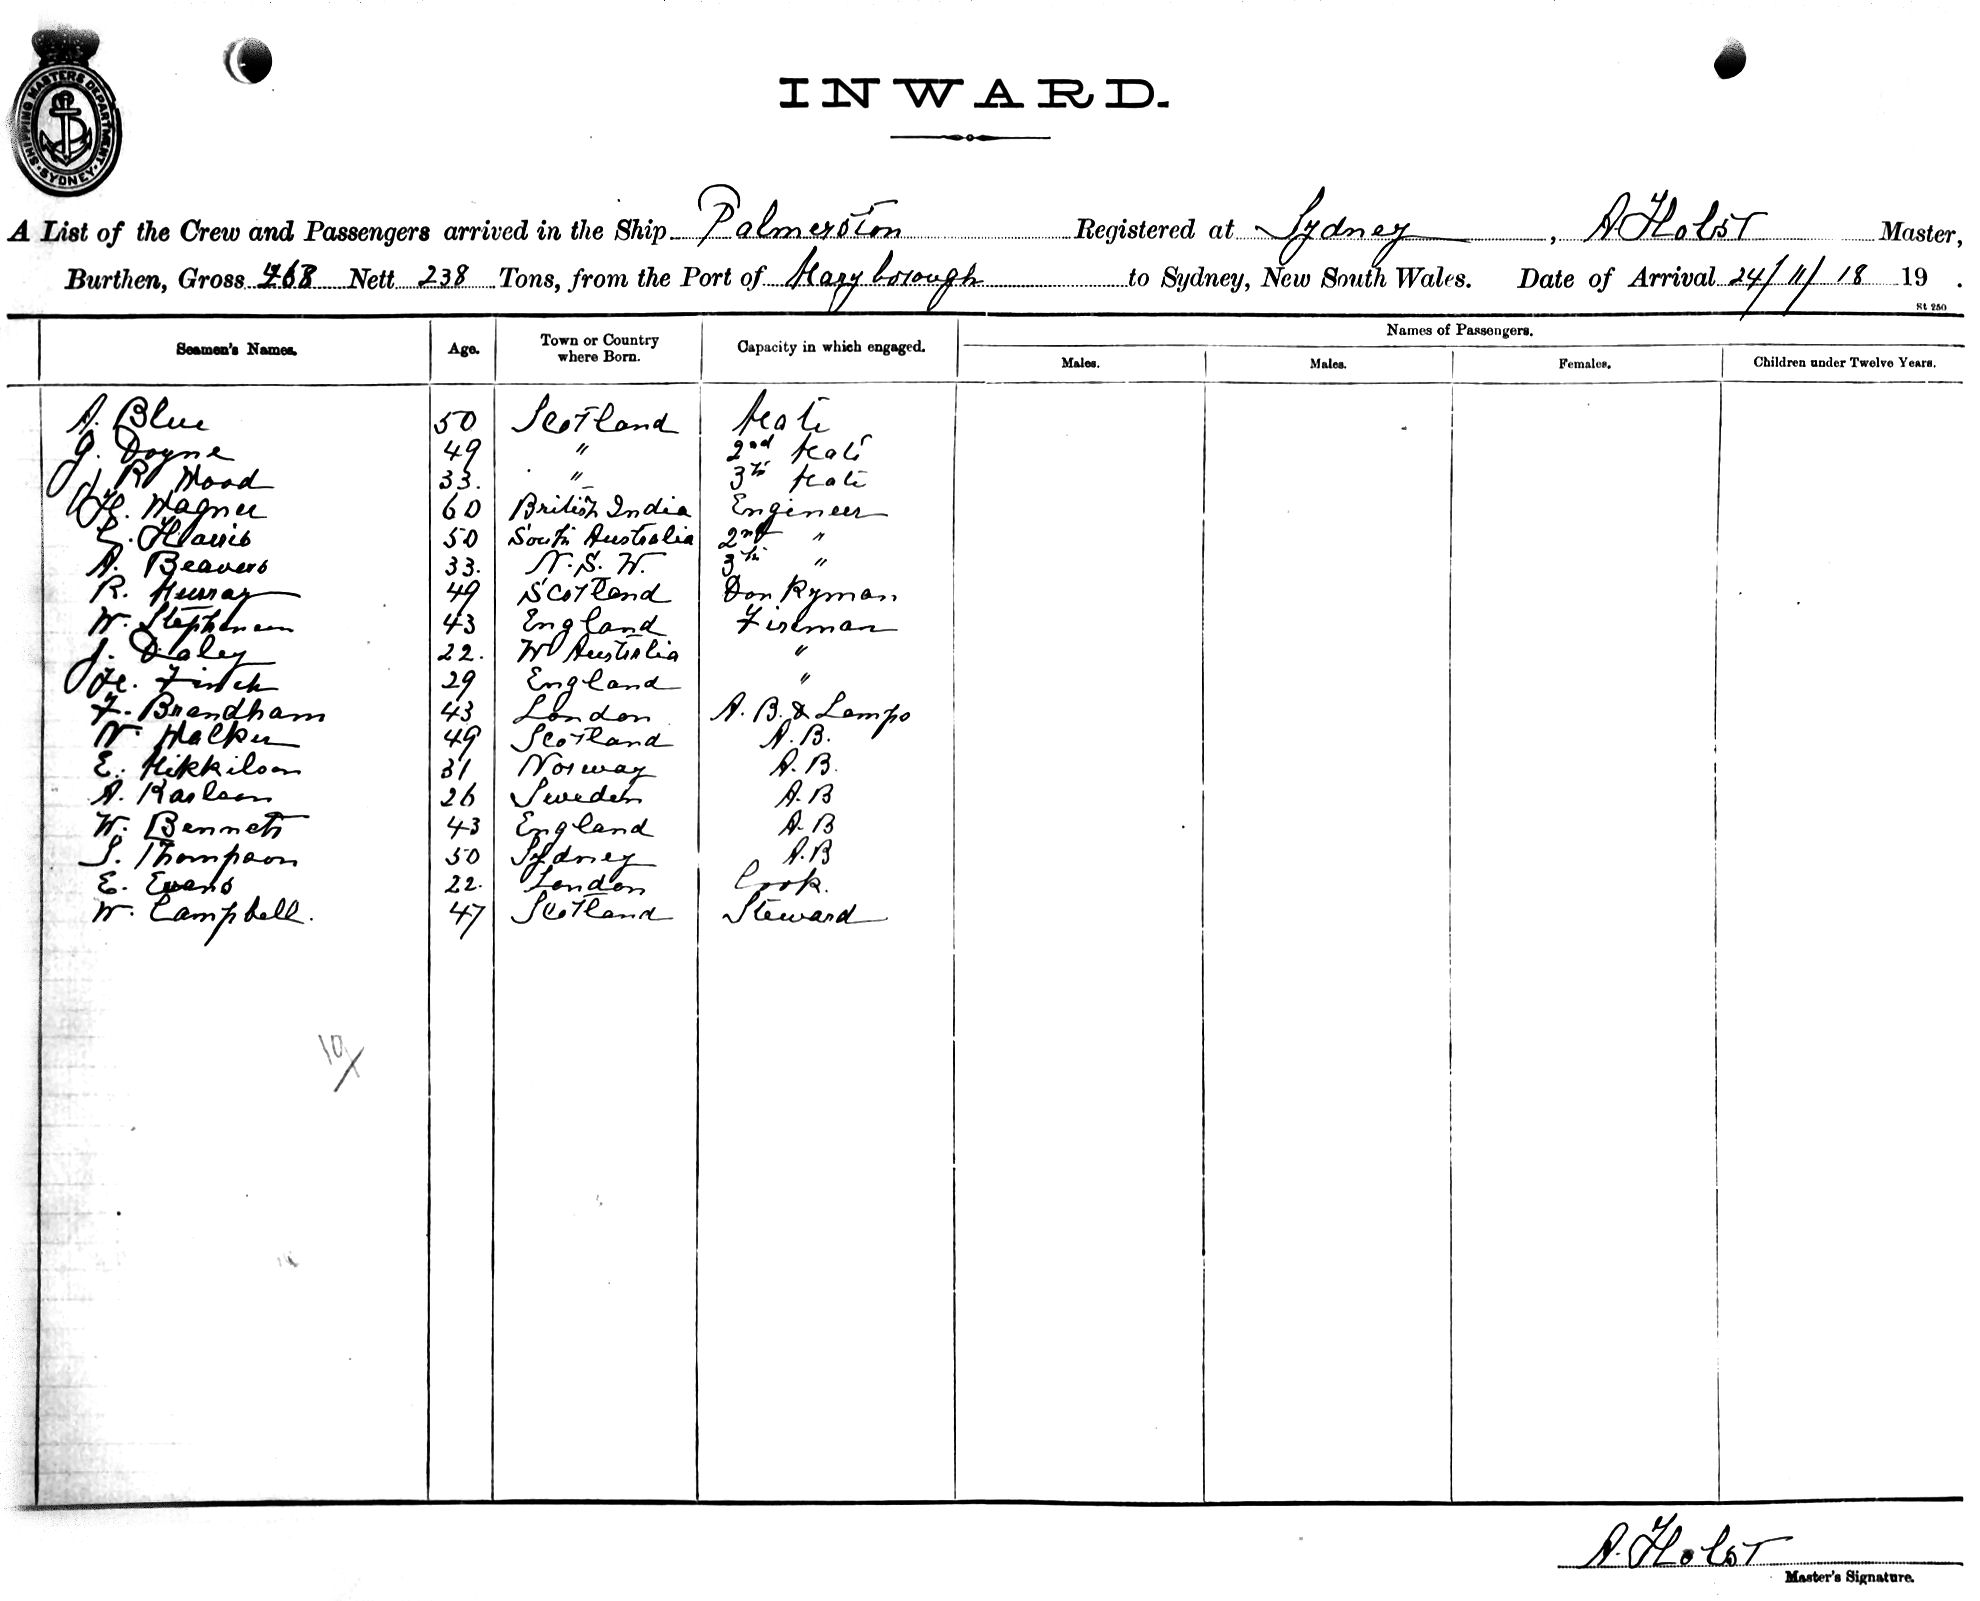 SHIPPING MASTERS DEPARTMENT
SYDNEY
INWARD.
A List of the Crew and Passengers arrived in the Ship Palmerston Registered at Sydney, A Holst Master,
Burthen, Gross Nett 238 Tons, from the Port of Maryborough to Sydney, New South Wales. Date of Arrival 24/11/18 19 .
St 250
Seamen's Names. Age. Town or Country where Born. Capacity in which engaged. Names of Passengers.
Males. Males. Females. Children under Twelve Years.
A. Blue 50 Scotland Mate
G. Doyne 49 " 2nd Mate
J R Wood 33. " 3th Mate
H. Wagner 60 British India Engineer
Harris 50 South Australia 2nd "
A. Beavers 33. N. S. W. 3th "
R. Murray 49 Scotland Don Kyman
W. Stephensen 43 England Fireman
J. Daley 22. W Australia "
H. Finch 29 England "
F. Brandham 43 London A. B. & Lamps
W. Walker 49 Scotland A. B.
E. Mikkilson 31 Norway A. B.
A. Karlson 26 Sweden A. B
W. Bennett 43 England A. B
S. Thompson 50 Sydney A. B
E. Evans 22. London Cook.
W. Campbell. 47 Scotland Steward
A. Holst
Master's Signature.